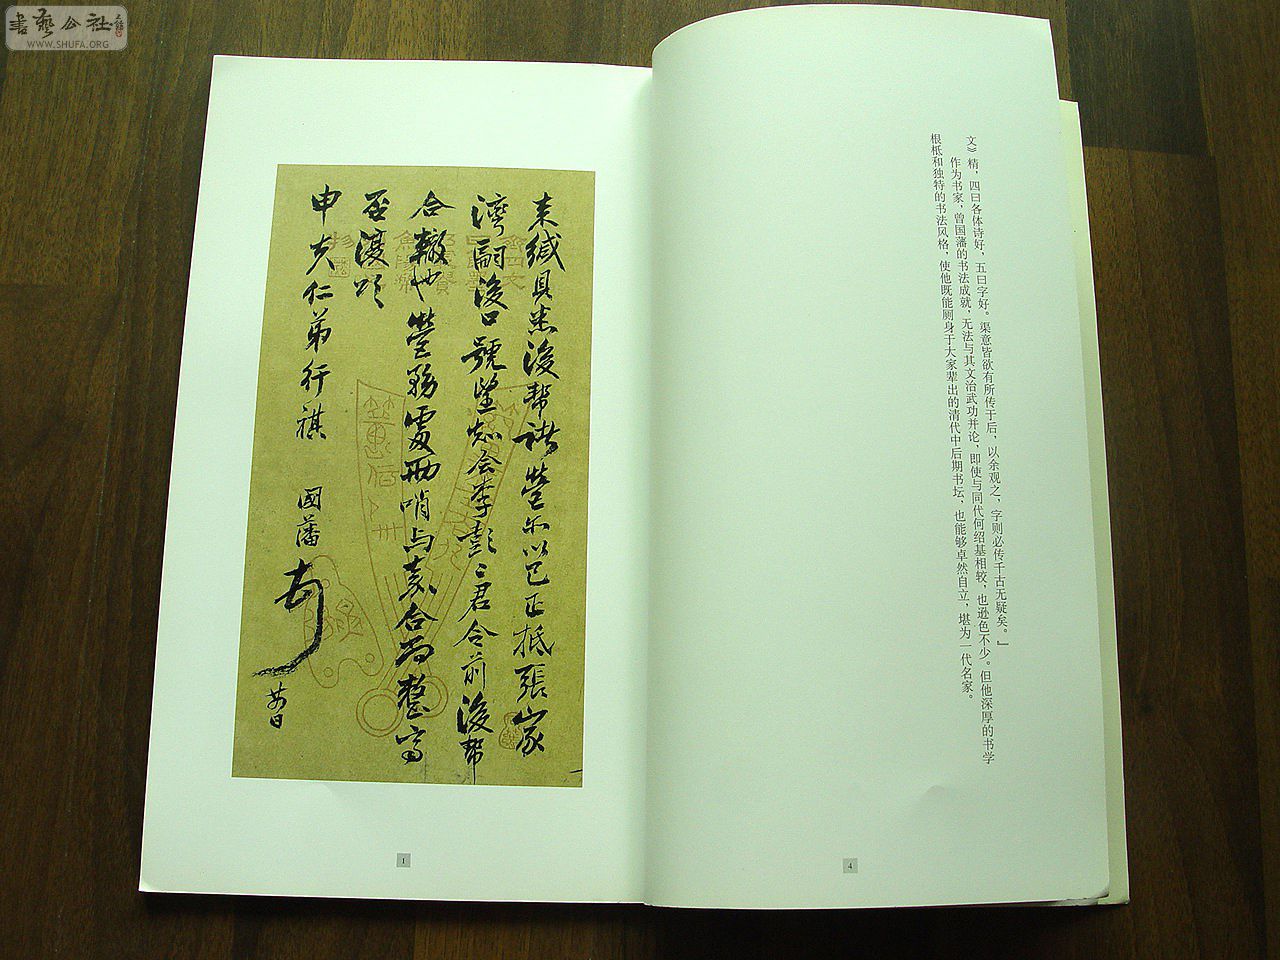 書藝公社
WWW.SHUFA.ORG
文》精，四曰各体诗好，五曰字好。渠意皆欲有所传于后，以余观之，字则必传千古无疑矣。』
作为书家，曾国藩的书法成就，无法与其文治武功并论，即使与同代何绍基相较，也逊色不少。但他深厚的书学
根柢和独特的书法风格，使他既能厕身于大家辈出的清代中后期书坛，也能够卓然自立，堪为一代名家。
4
来缄具悉後帮諸營尔以已正抵張家
灣嗣後口號望知会李彭二君令前後帮
合轍也營務處兩哨与嘉合而整齊
至後頌
申夫仁弟行祺
國藩
1